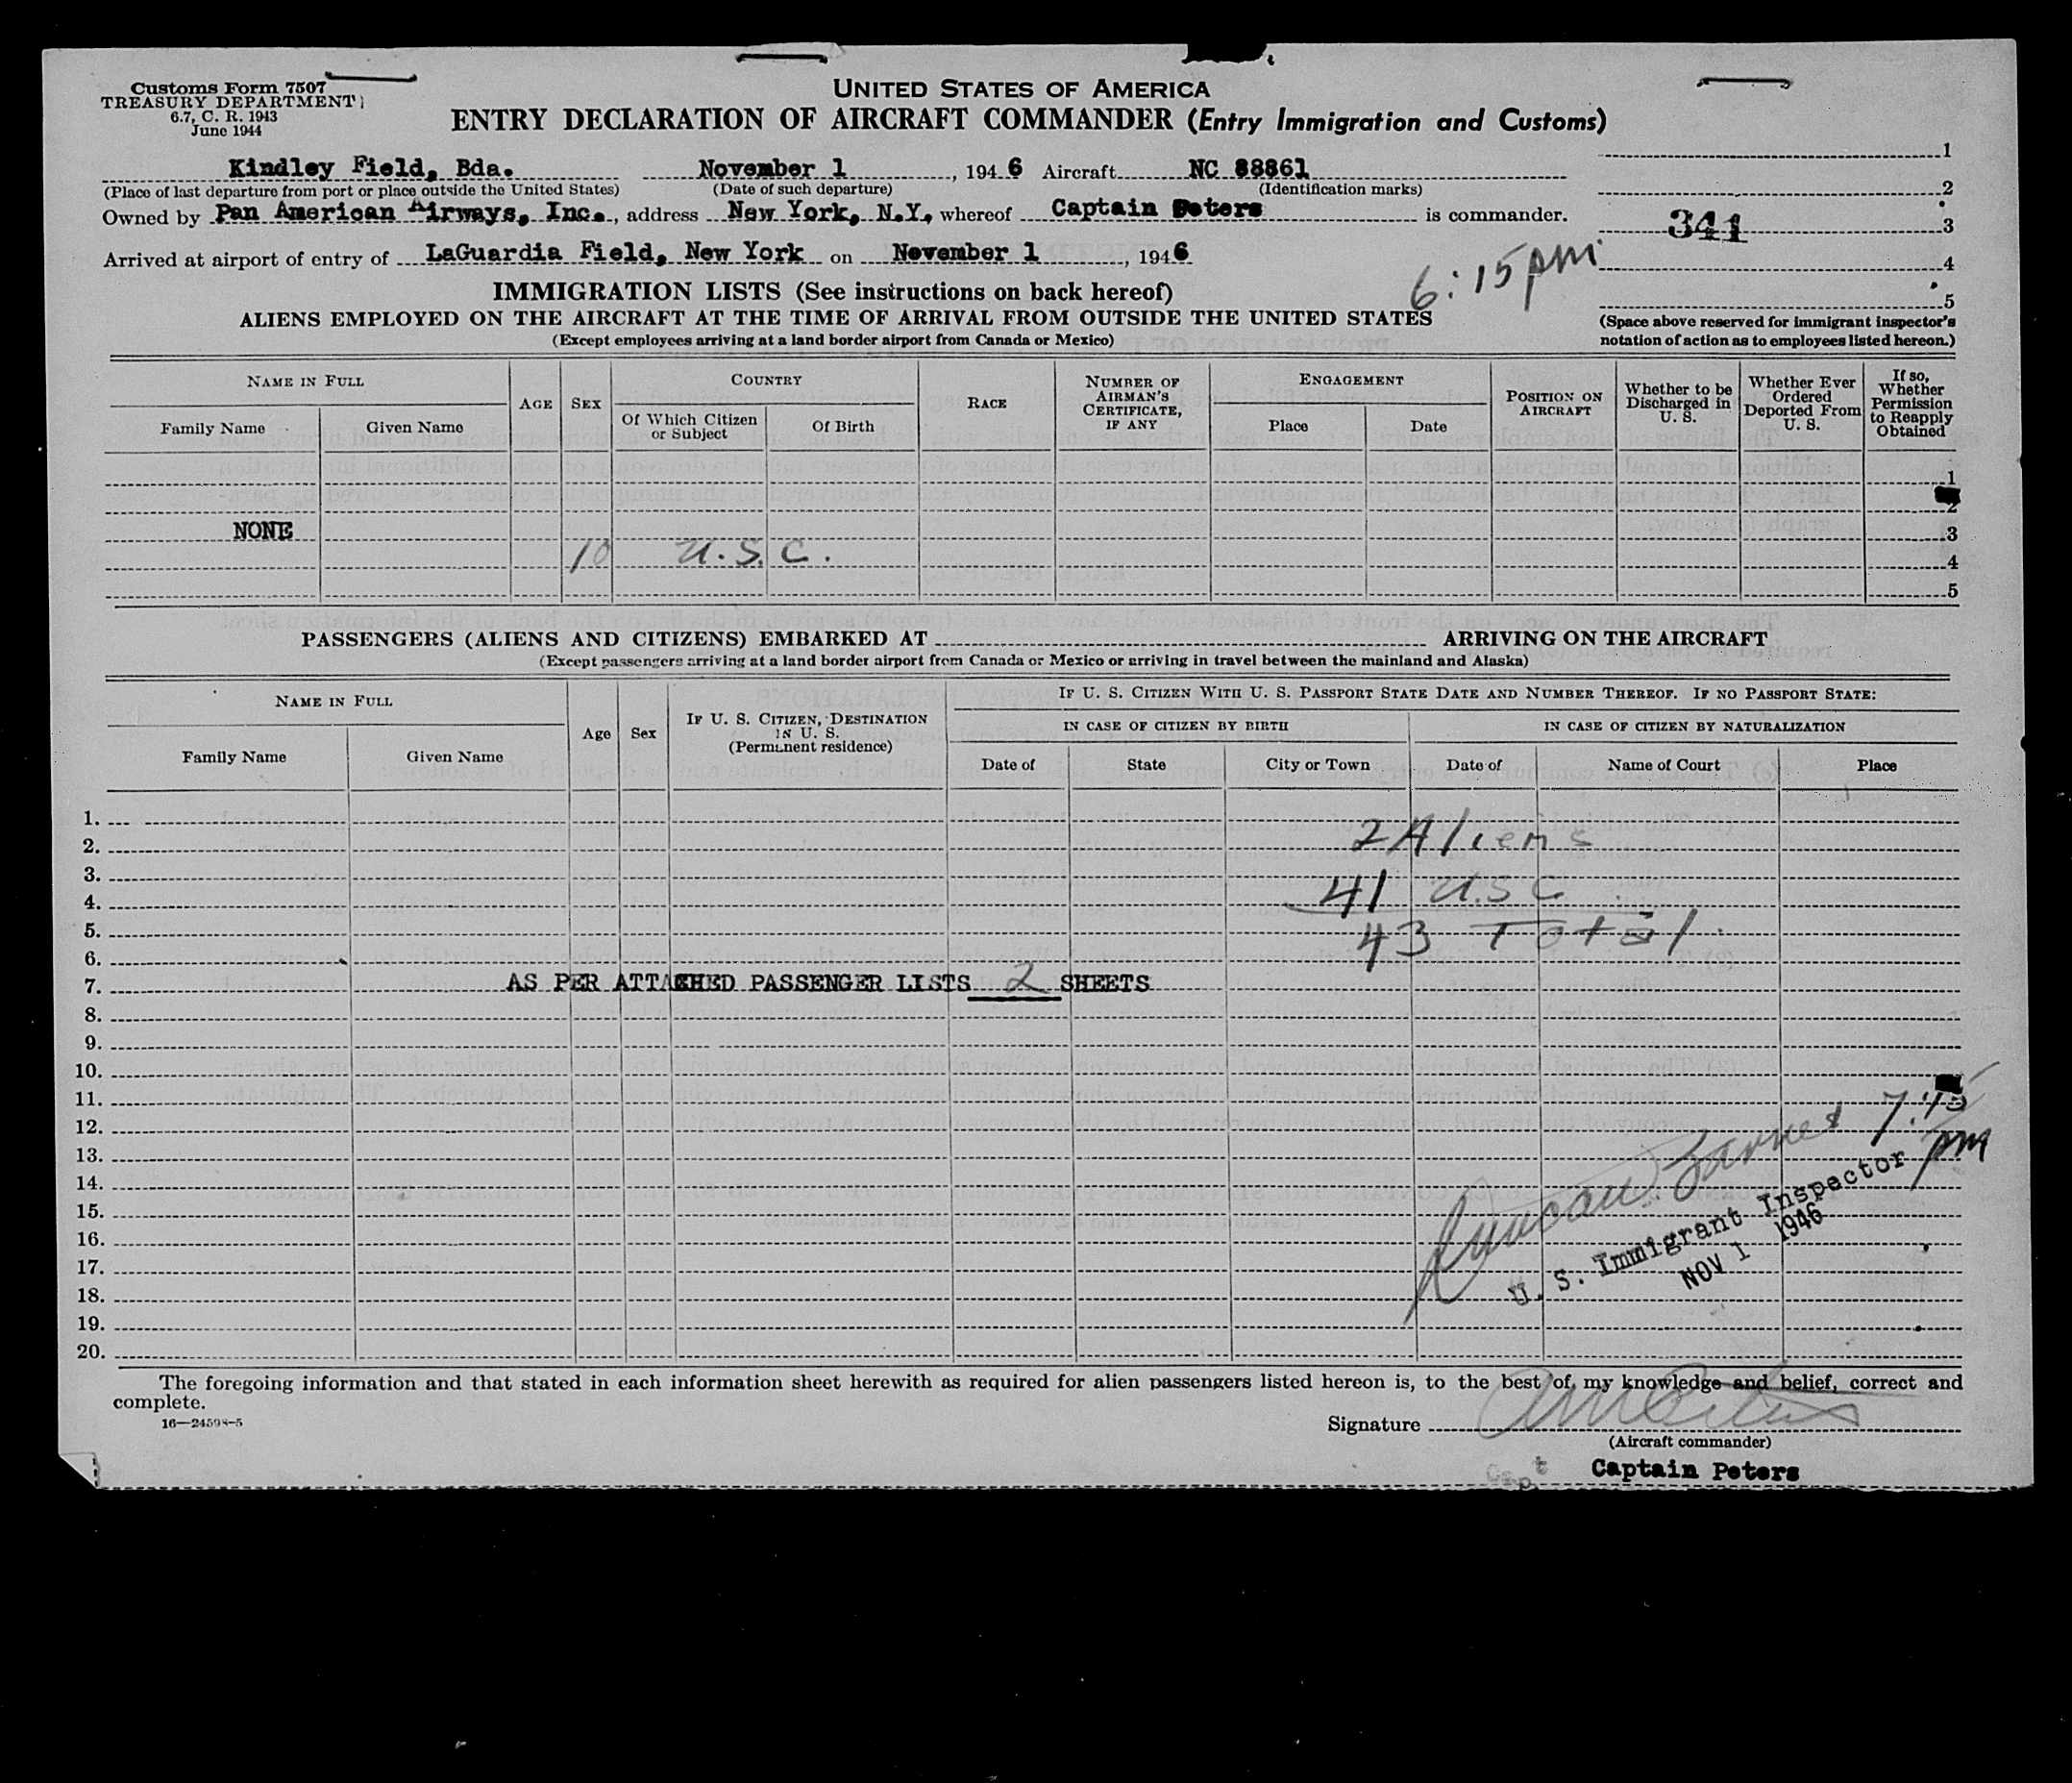 Customs Form 7507
TREASURY DEPARTMENT
6.7, C. R. 1943
June 1944
UNITED STATES OF AMERICA
ENTRY DECLARATION OF AIRCRAFT COMMANDER (Entry Immigration and Customs)
Kindley Field, Bda. November 1, 1946 Aircraft NC 88861
(Place of last departure from port or place outside the United States) (Date of such departure) (Identification marks)
Owned by Pan American Airways, Inc., address New York, N.Y., whereof Captain Peters is commander.
Arrived at airport of entry of LaGuardia Field, New York on November 1, 1946
6:15 pm
1
2
341 3
4
5
(Space above reserved for immigrant inspector's
notation of action as to employees listed hereon.)
IMMIGRATION LISTS (See instructions on back hereof)
ALIENS EMPLOYED ON THE AIRCRAFT AT THE TIME OF ARRIVAL FROM OUTSIDE THE UNITED STATES
(Except employees arriving at a land border airport from Canada or Mexico)
NAME IN FULL
Family Name
Given Name
AGE
SEX
COUNTRY
Of Which Citizen
or Subject
Of Birth
RACE
NUMBER OF
AIRMAN'S
CERTIFICATE,
IF ANY
ENGAGEMENT
Place
Date
POSITION ON
AIRCRAFT
Whether to be
Discharged in
U. S.
Whether Ever
Ordered
Deported From
U. S.
If so,
Whether
Permission
to Reapply
Obtained
1
2
NONE 3
10 U.S.C. 4
5
PASSENGERS (ALIENS AND CITIZENS) EMBARKED AT ARRIVING ON THE AIRCRAFT
(Except passengers arriving at a land border airport from Canada or Mexico or arriving in travel between the mainland and Alaska)
NAME IN FULL
Family Name
Given Name
Age
Sex
IF U. S. CITIZEN, DESTINATION
IN U. S.
(Permanent residence)
IF U. S. CITIZEN WITH U. S. PASSPORT STATE DATE AND NUMBER THEREOF. IF NO PASSPORT STATE:
IN CASE OF CITIZEN BY BIRTH
IN CASE OF CITIZEN BY NATURALIZATION
Date of
State
City or Town
Date of
Name of Court
Place
1.
2. 2 Aliens
3.
4. 41 U.S.C
5. 43 Total
6.
7. AS PER ATTACHED PASSENGER LISTS 2 SHEETS
8.
9.
10.
11.
12.
13.
14.
15.
16.
17.
18.
19.
20.
7:45
pm
Duncan
U. S. Immigrant Inspector
NOV 1 1946
The foregoing information and that stated in each information sheet herewith as required for alien passengers listed hereon is, to the best of my knowledge and belief, correct and
complete.
16—24598-5
Signature
(Aircraft commander)
Capt Captain Peters